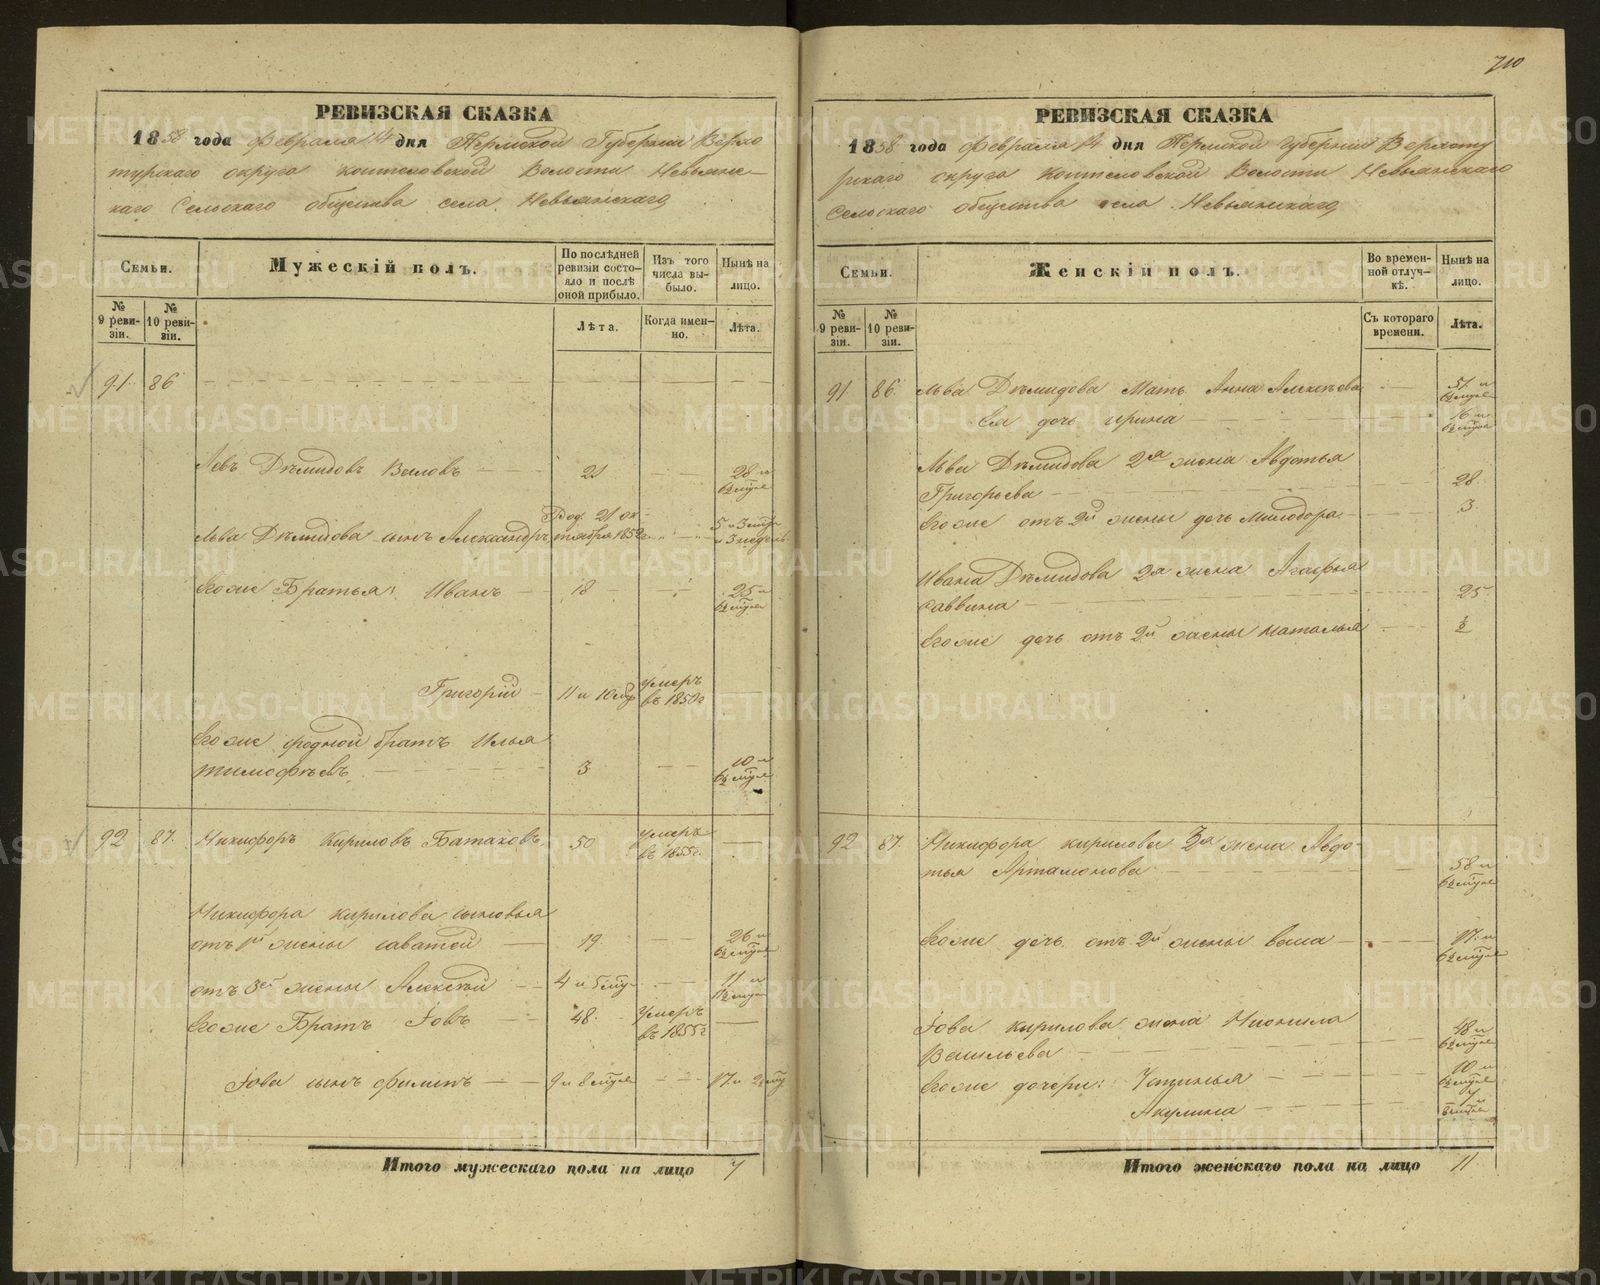 710
РЕВИЗСКАЯ СКАЗКА
1858 года февраля 14 дня Пермской Губернии Верхо
турскаго округа Коптеловской Волости Невьянс-
каго Сельскаго общества села Невьянскаго
Семьи.
Мужескій полъ.
По послѣдней ревизіи состо-яло и послѣ оной прибыло.
Изъ того числа вы-было.
Нынѣ на лицо.
№ 9 реви-зіи.
№ 10 реви-зіи.
Лѣта.
Когда имен-но.
Лѣта.
91 86
Левъ Демидовъ 21 28 и
Льва Демидова сынъ Александръ 5 и 3 мѣс
и 3 недель
Егоже Братья: Иванъ 18 25 и
Григорій 11 и умеръ
въ 1850 г
Егоже родной братъ Илья
Тимофѣевъ 3 10 и
92 87. Никифоръ Кириловъ Батаковъ 50 умеръ
въ 1855 г.
Никифора Кирилова сыновья
отъ 1й жены Саватей 19. 26 и
отъ 3ей жены Алексѣй 4 и 11 и
Егоже Братъ Іовъ 48. умеръ
въ 1855 г
Іова сынъ Филипъ 9 и 17 и
Итого мужескаго пола на лицо 7
РЕВИЗСКАЯ СКАЗКА
1858 года февраля 14 дня Пермской губерніи Верхоту
рскаго округа Коптеловской Волости Невьянскаго
Сельскаго общества села Невьянскаго
Семьи.
Женскій полъ.
Во времен-ной отлуч-кѣ.
Нынѣ на лицо.
№ 9 реви-зіи.
№ 10 реви-зіи.
Съ котораго времени.
Лѣта.
91 86. Льва Демидова Мать Анна Алексѣева 51 и
Ея дочь Ирина 16 и
Льва Демидова 2я жена Авдотья
Григорьева 28
Егоже отъ 2й жены дочь Милодора 3
Ивана Демидова 2я жена Агафья
Саввина 25
Егоже дочь отъ 2й жены Наталья
92 87. Никифора Кирилова 3я жена Авдо-
тья Артамонова 58 и
Егоже дочь отъ 2й жены 17 и
Іова Кирилова жена Неонила
Васильева 48 и
Егоже дочери: Устинья 10 и
Акулина 7 и
Итого женскаго пола на лицо 11
METRIKI.GASO-URAL.RU